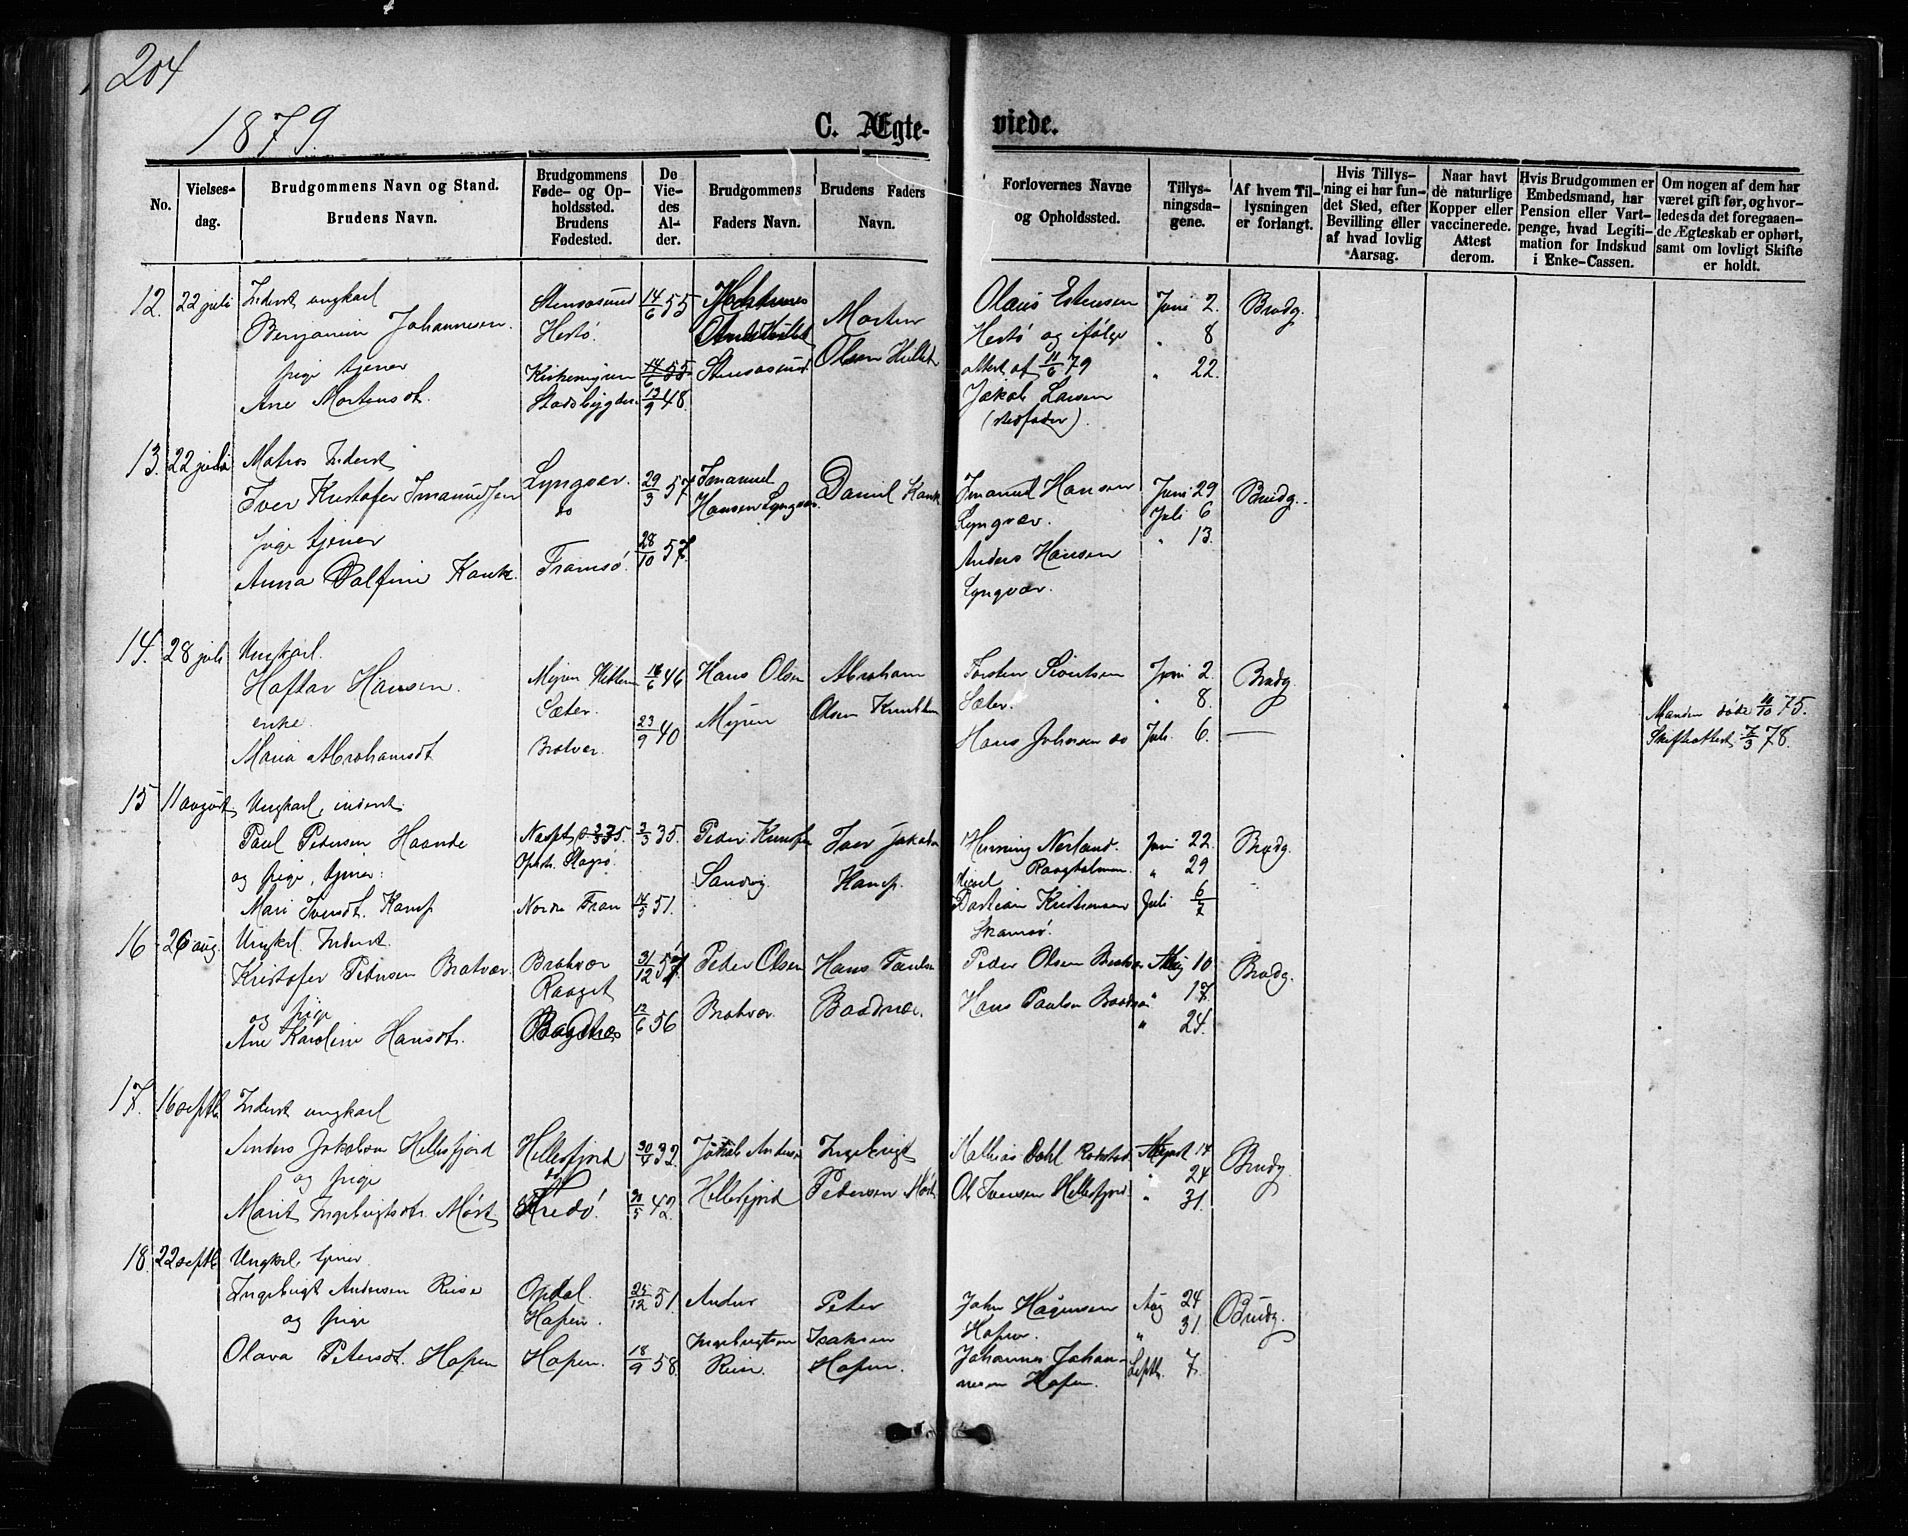 204
1879.
C. Ægte-
viede.
No.
Vielses-
dag.
Brudgommens Navn og Stand.
Brudens Navn.
Brudgommens
Føde- og Op-
holdssted.
Brudens
Fødested.
De
Vie-
des
Al-
der.
Brudgommens
Faders Navn.
Brudens Faders
Navn.
Forlovernes Navne
og Opholdssted.
Tillys-
ningsda-
gene.
Af hvem Til-
lysningen
er forlangt.
Hvis Tillys-
ning ei har fun-
det Sted, efter
Bevilling eller
af hvad lovlig
Aarsag.
Naar havt
de naturlige
Kopper eller
vaccinerede.
Attest
derom.
Hvis Brudgommen er
Embedsmand, har
Pension eller Vart-
penge, hvad Legiti-
mation for Indskud
i Enke-Cassen.
Om nogen af dem har
været gift før, og hvor-
ledes da det foregaaen-
de Ægteskab er ophørt,
samt om lovligt Skifte
er holdt.
12. 22 juli
Inderst ungkarl
Benjamin Johannesen.
pige tjener
Ane Mortensdt.
Stensøsund
Hestø.
Stadsbygden
14/6 55
14/6 55
13/9 48.
Stensøsund.
Morten
Olsen
Olaus Estensen
Hestø og ifølge
attest af 11/6 79
Jakob Larsen
(stedfader).
Juni 2.
" 8
" 22.
Brudg.
13. 22 juli
Matros Inderst
Iver Kristofer Imanuelsen
pige tjener
Anna Dalfine Kank.
Lyngvær.
do
Tromsø.
29/3 57
28/10 57.
Imanuel
Hansen Lyngvær.
Daniel Kank
Imanuel Hansen
Lyngvær.
Anders Hansen
Lyngvær.
Juni 29
Juli 6
" 13.
Brudg.
14. 28 juli
Ungkarl.
Haftor Hansen.
enke.
Maria Abrahamsdt
Myren
Sæter.
Bratvær.
16/6 46
23/9 40
Hans Olsen
Myren
Abraham
Olsen
Torsten Sivertsen
Sæter.
Hans Johnsen do
Juni 2.
" 8.
Juli 6.
Brudg.
—
Manden døde 11/10 75.
Skifteattest 7/3 78.
15 11 august
Ungkarl, inderst.
Paul Pedersen Haande
og pige, tjener:
Mari Iversdt. Kamp
3/3 35.
Nordre Frøn
3/3 35.
14/5 51.
Peder Knudsen
Sandvig
Iver Jakobsen
Kamp.
Henning Nerland.
Bastian Kristiansen
Skamsø.
Juni 22
" 29
Juli 6/7
Brudg.
16 26 aug.
Ungkrl. Inderst.
Kristofer Pedersen Bratvær.
og pige
Ane Karoline Hansdt.
Bratvær
31/12 57
12/6 56
Peder Olsen
Bratvær.
Hans Paulsen
Baadnæs.
Peder Olsen Bratvær
Hans Paulsen
Aug 10
" 17.
" 24.
Brudg.
17. 16 septb.
Inderst ungkarl
Anders Jakobsen Hellesfjord
og pige
Marit Ingebrigtsdt. Mørt
Hellesfjord
do
Fredø.
30/4 32.
42.
Jakob Andersen
Hellesfjord
Ingebrigt
Pedersen
Mathias Dahl
Ole Iversen Hellesfjord.
August 14
" 24
" 31.
Brudg.
18. 22 septb.
Ungkrl. tjener
Ingebrigt Andersen Reise
og pige
Olava Petersdt. Hopen
Opdal.
Hopen.
Hopen.
25/12 51.
18/9 58.
Anders
Ingebrigtsen
Peter
Isaksen
Hopen.
John Hågensen
Hopen.
Johannes Johan-
nesen Hopen.
Aug 24
" 31.
Septb. 7.
Brudg.